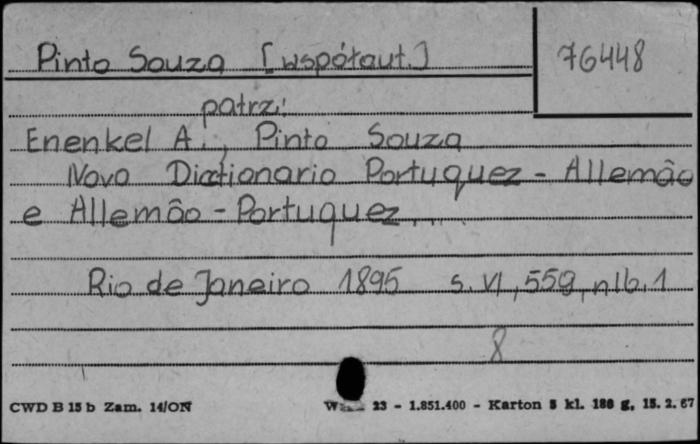 Pinto Souza [współaut.] 76448
patrz:
Enenkel A., Pinto Souza
Novo Dictionario Portuquez - Allemâo
e Allemâo - Portuquez...
Rio de Janeiro 1895 s. VI, 559, nlb. 1
8
CWD B 15 b Zam. 14/ON 23 - 1.851.400 - Karton 5 kl. 180 g, 15. 2. 67